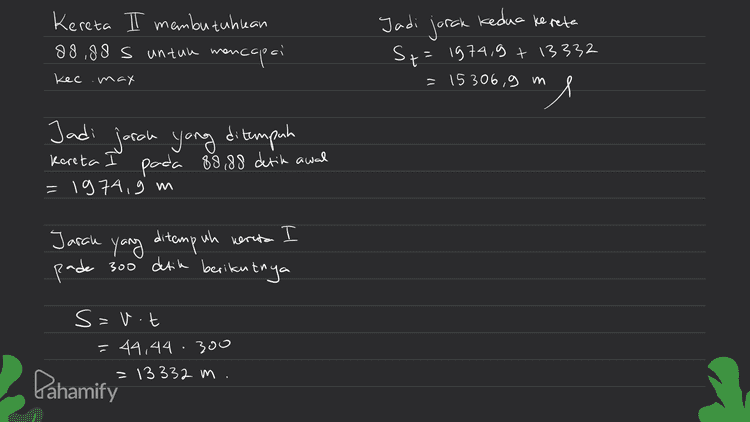 Kereta II membutuhkan
88,88 s untuk mencapai
kec. max
Jadi jarak yang ditempuh
kereta I pada 88,88 detik awal
= 1974,9 m
Jarak yang ditempuh kereta I
pada 300 detik berikutnya
S = v . t
= 44,44 . 300
= 13332 m .
Jadi jarak kedua kereta
St = 1974,9 + 13332
= 15306,9 m
Pahamify